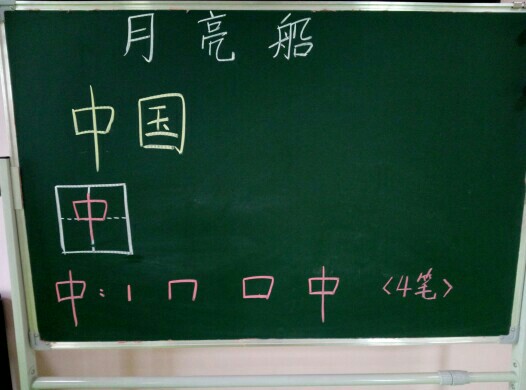 月亮船
中国
中
中：丨 𠃍 口 中 〈4笔〉